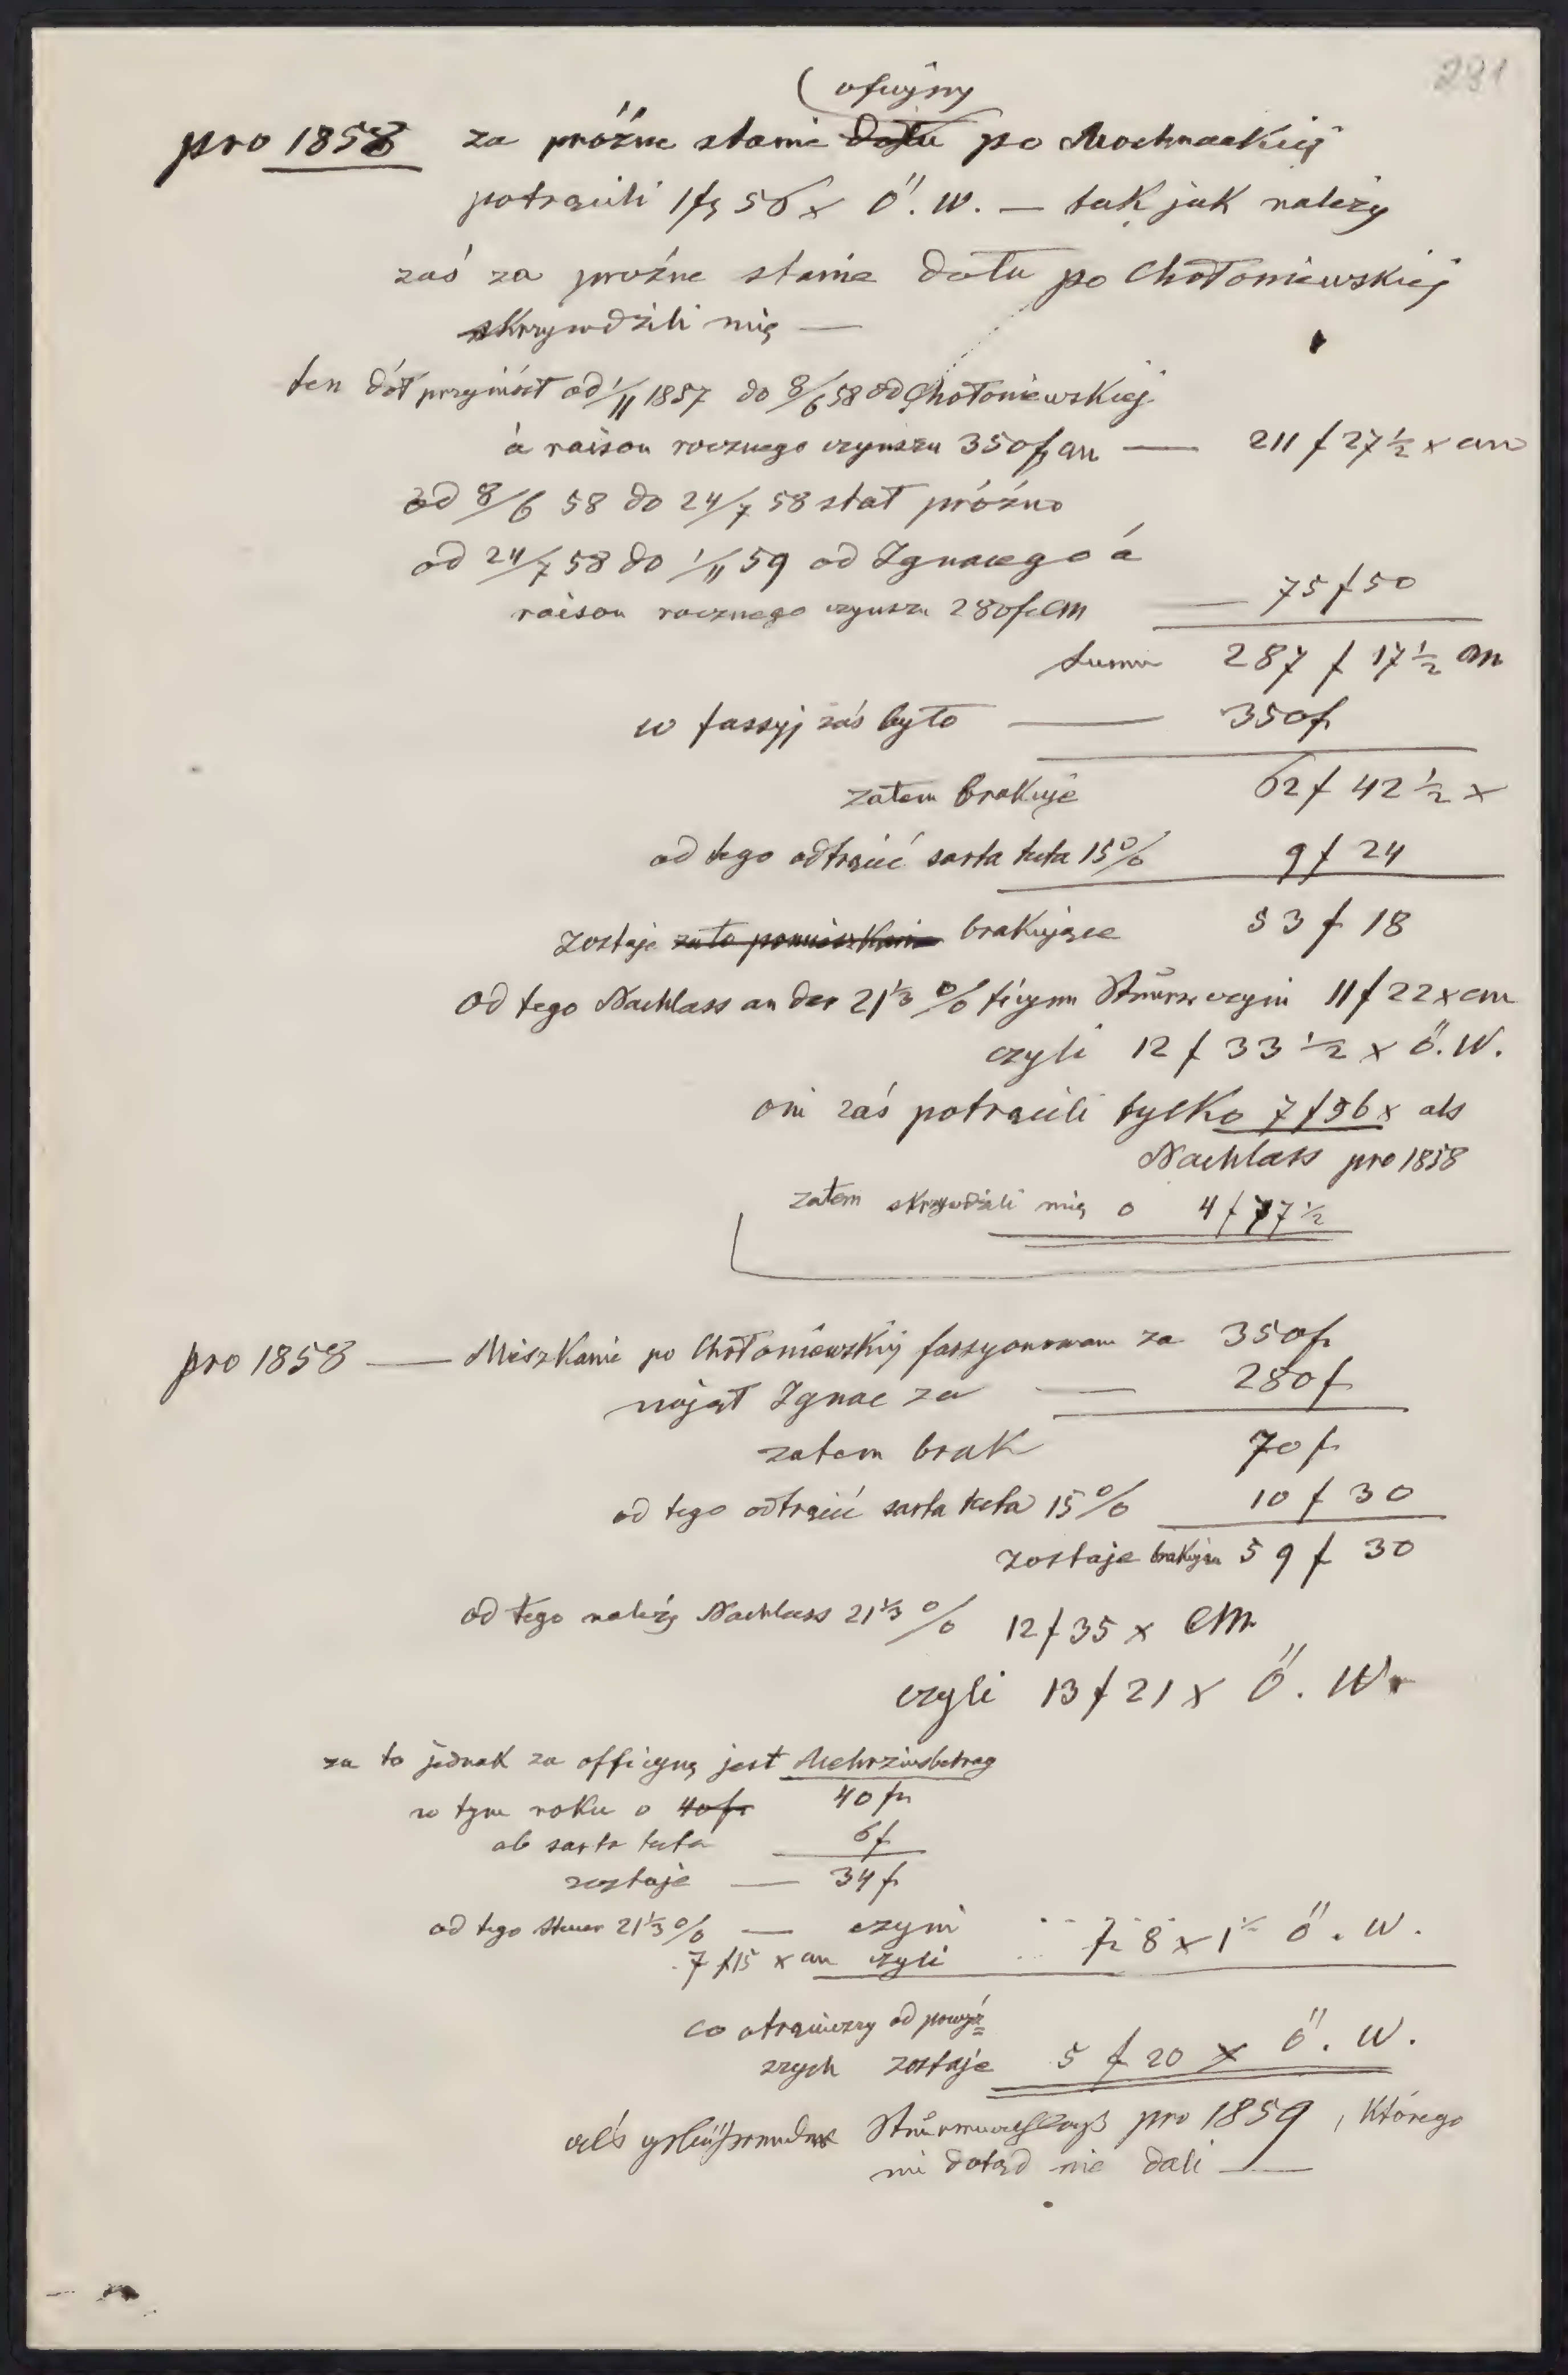 291
(oficyny
pro 1858 za próżne stanie dołu po Mochnackiej
potrącili 1f 56x Ö. W. — tak jak należy
zaś za prożne stanie dołu po Chołoniewskiej
skrzywdzili mię —
ten dół przyniósł od 1/11 1857 do 8/6 58 od Chołoniewskiej
à raison rocznego czynszu 350f cm — 211 f 27 1/2 x cm
od 8/6 58 do 24/7 58 stał próżno
od 24/7 58 do 1/11 59 od Ignacego á
raison rocznego czynszu 280f CM — 75 f 50
suma 287 f 17 1/2 cm
w fassyj zaś było — 350f
zatem brakuje 62 f 42 1/2 x
od tego odtrącić sarta tecta 15% 9 f 24
zostaje za to pomieszkanie brakujące 53 f 18
od tego Nachlass an der 21 1/3 % czyni 11 f 22 x cm
czyli 12 f 33 1/2 x ö. W.
oni zaś potrącili tylko 7 f 56 x als
Nachlass pro 1858
zatem skrzywdzili mię o 4 f 77 1/2
pro 1858 — Mieszkanie po Chołoniewskiej fassyonowane za 350f
najął Ignac za — 280 f
zatem brak 70 f
od tego odtrącić sarta tecta 15% 10 f 30
zostaje brakując 59 f 30
od tego należy Nachlass 21 1/3 % 12 f 35 x CM
czyli 13 f 21 x Ö. W.
za to jednak za officynę jest Mehrzinsbetrag
w tym roku o 40f 40 f
ab sarta tecta 6f
zostaje — 34 f
od tego Steuer 21 1/3 % — czyni
7 f 15 x cm czyli f 8 x 1 ö. W.
co otrąciwszy od powyż=
szych zostaje 5 f 20 x ö. W.
als pro 1859, którego
mi dotąd nie dali —